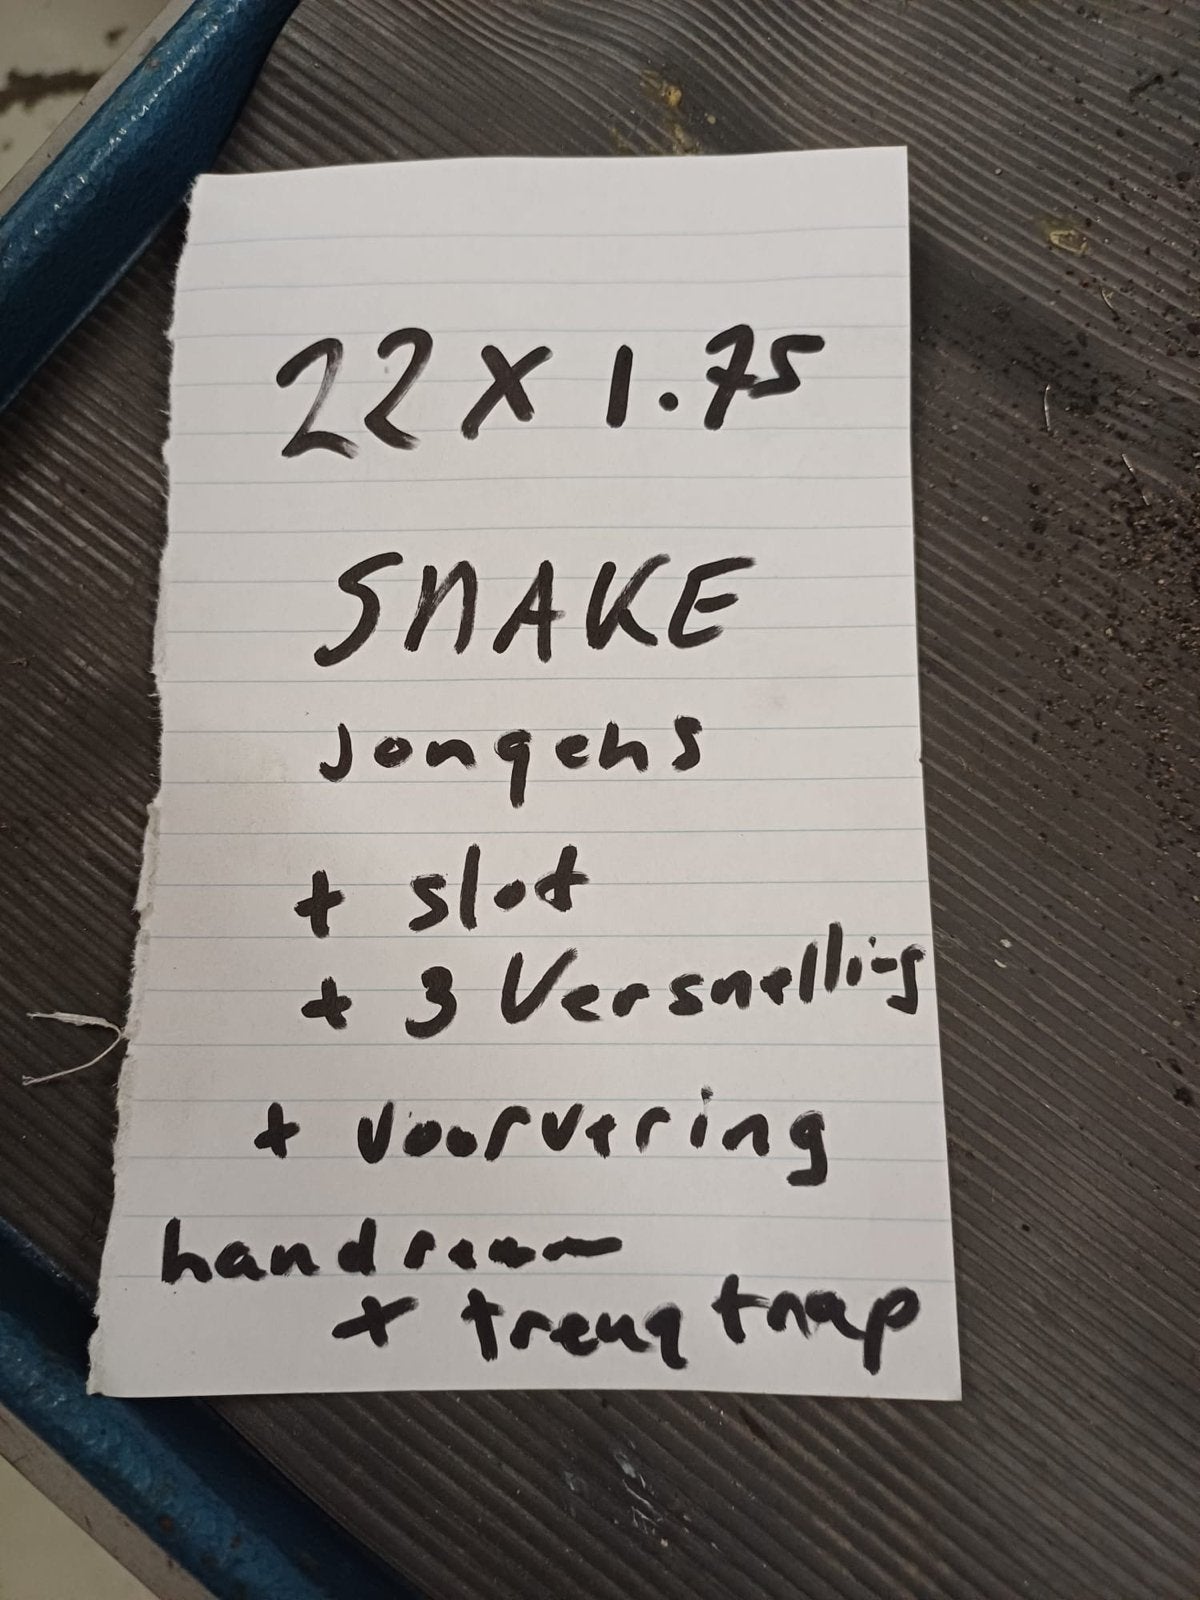 22 x 1.75
SNAKE
jongens
+ slot
+ 3 Versnelling
+ voorvering
handrem
+ treuqtrap